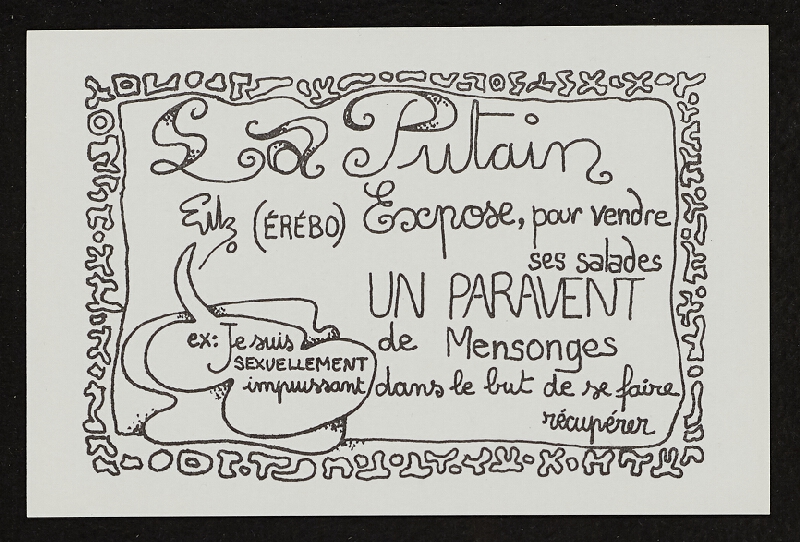 La Putain
(ÉRÉBO) Expose, pour vendre
ses salades
UN PARAVENT
de Mensonges
ex: Je suis
SEXUELLEMENT
impuissant
dans le but de se faire
récupérer